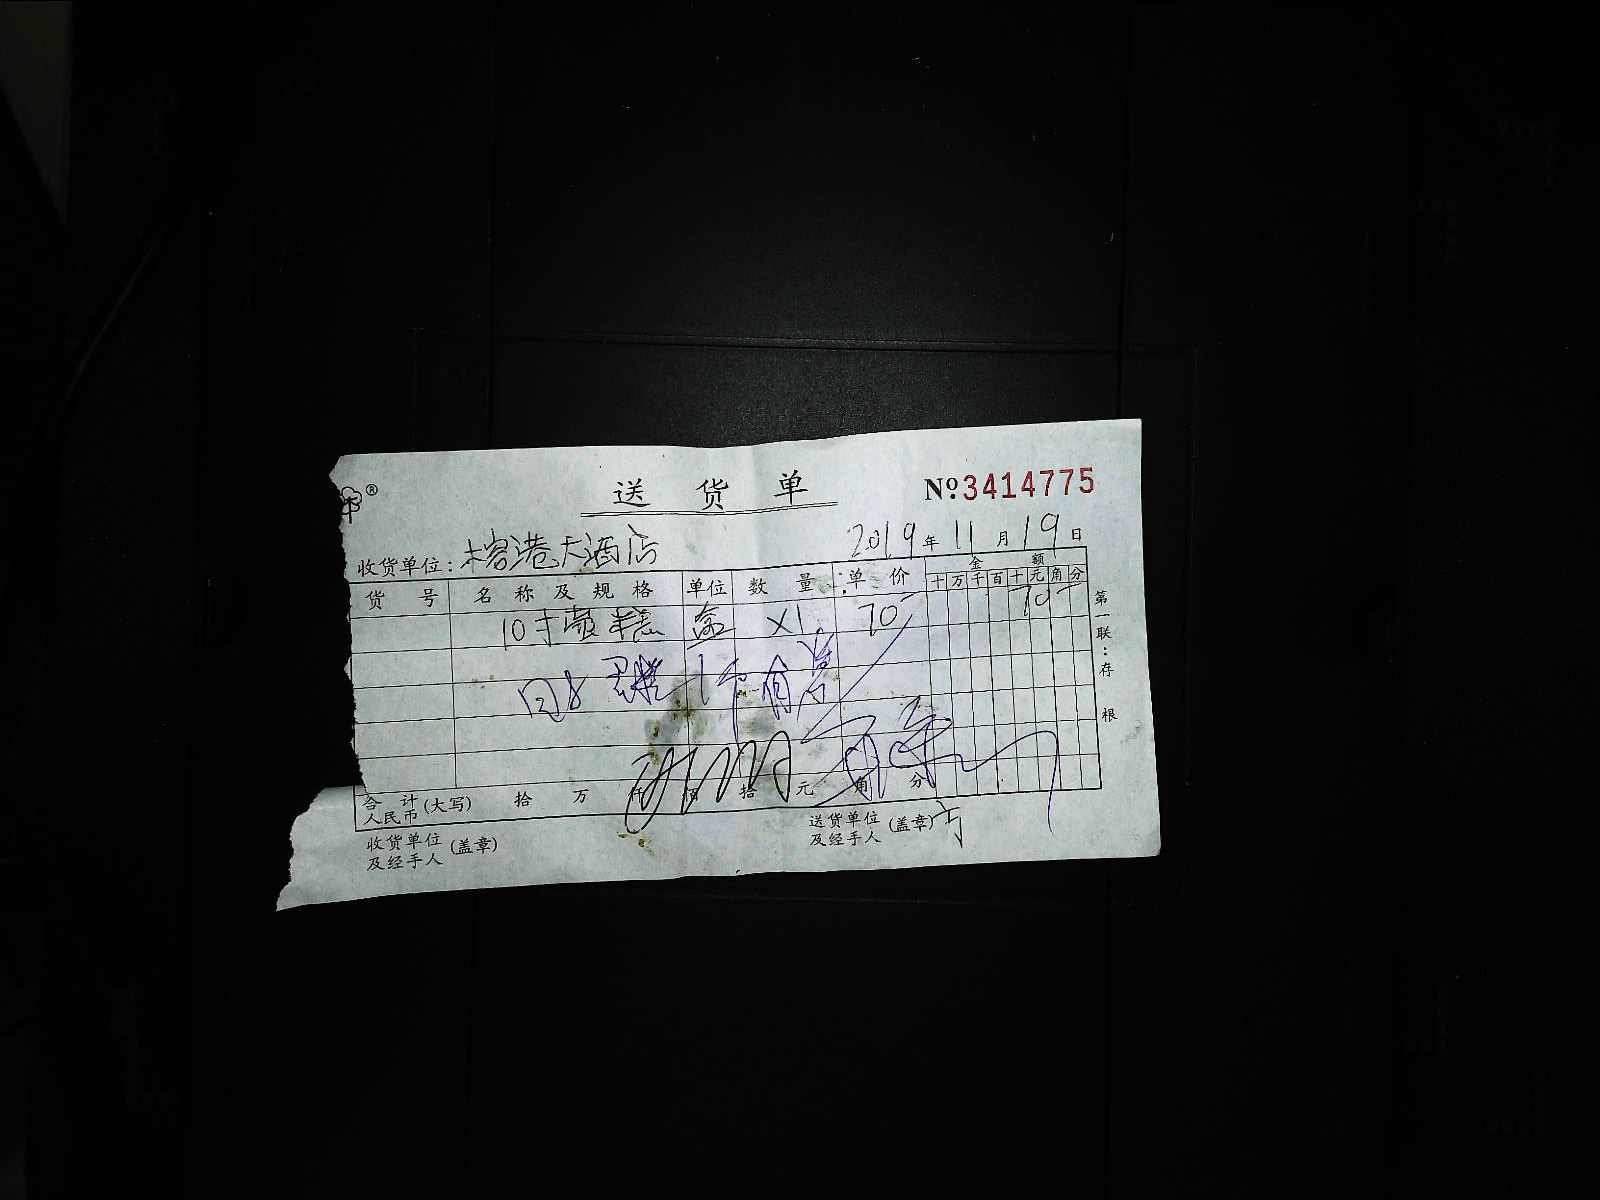 ®
送货单 №3414775
收货单位: 榕港大酒店 2019年11月19日
货号 名称及规格 单位 数量 单价 金额
十万千百十元角分
10寸蛋糕 盒 X1 70- 70-
第一联:存根
合计人民币(大写) 拾 万 仟 佰 拾 元 角 分
收货单位及经手人(盖章) 送货单位及经手人(盖章)